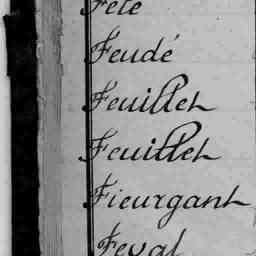 Fête
Feudé
Feuillet
Feuillet
Fieurgant
Feval